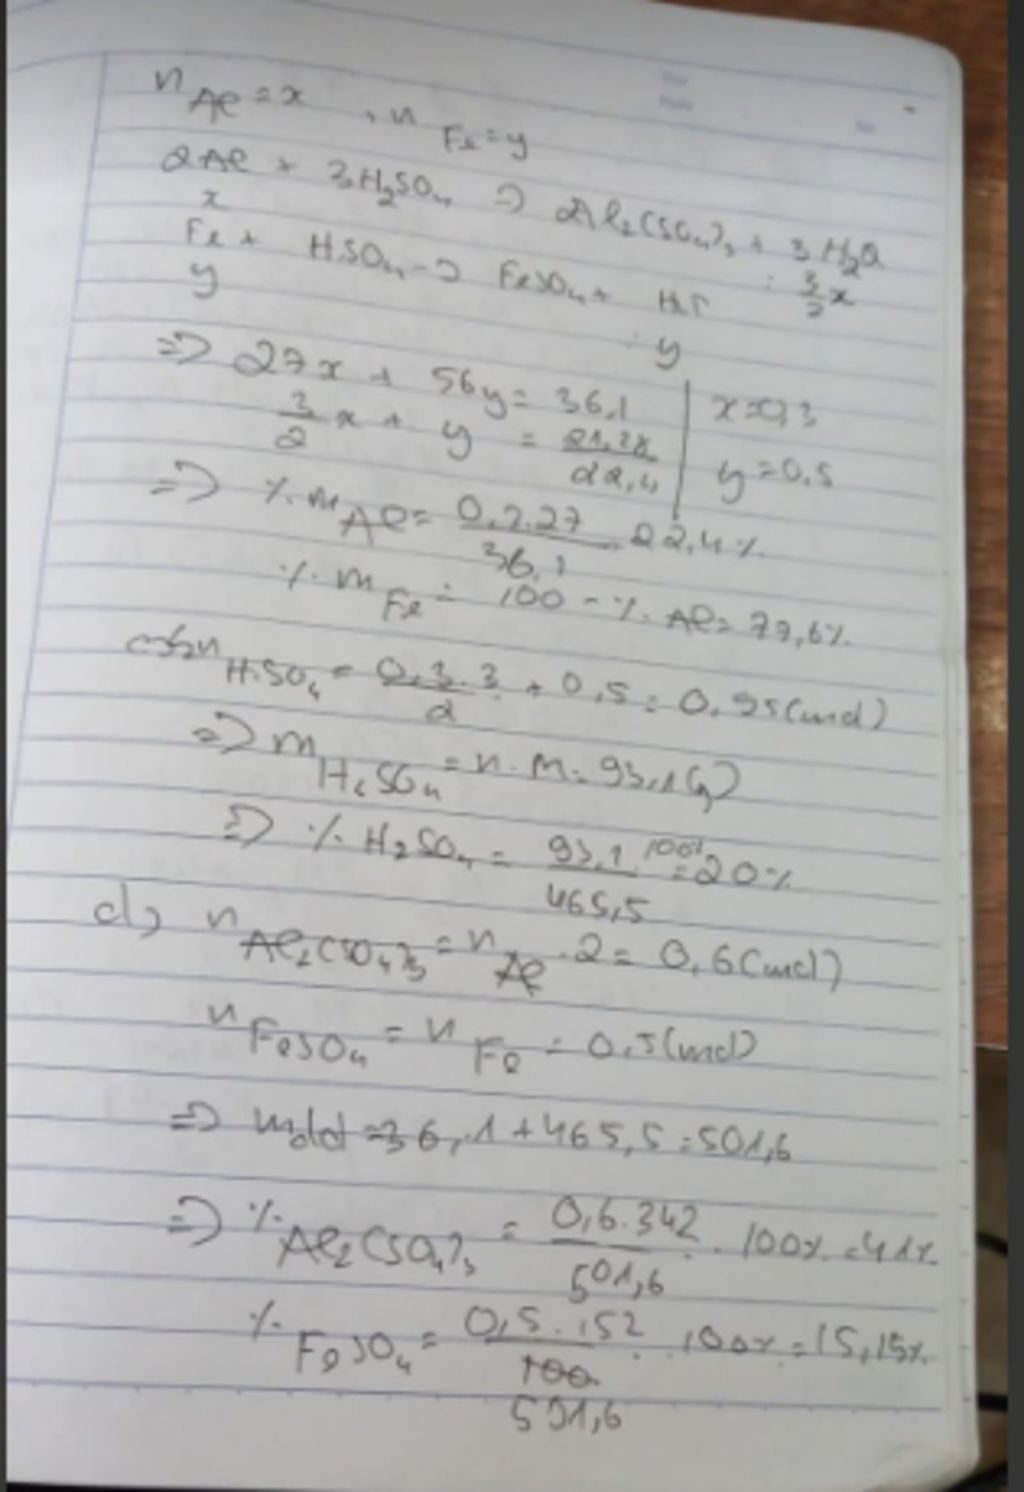 n Al = x , n Fe = y
2Al + 3H2SO4 => 2Al2(SO4)3 + 3H2O
x : 3/2 x
Fe + H2SO4 -> FeSO4 + H2↑
y : y
=> 27x + 56y = 36,1 | x = 0,3
3/2 x + y = 21,28/22,4 | y = 0,5
=> % m Al = 0,2.27/36,1 22,4%
% m Fe = 100 - % Al = 77,6%
n H2SO4 = 0,3.3/2 + 0,5 = 0,95(mol)
=> m H2SO4 = n.M = 93,1(g)
=> % H2SO4 = 93,1/465,5 100% = 20%
d) n Al2(SO4)3 = n Al .2 = 0,6(mol)
n FeSO4 = n Fe = 0,5(mol)
=> mdd = 36,1 + 465,5 = 501,6
=> % Al2(SO4)3 = 0,6.342/501,6 . 100% = 41%
% FeSO4 = 0,5.152/501,6 . 100% = 15,15%